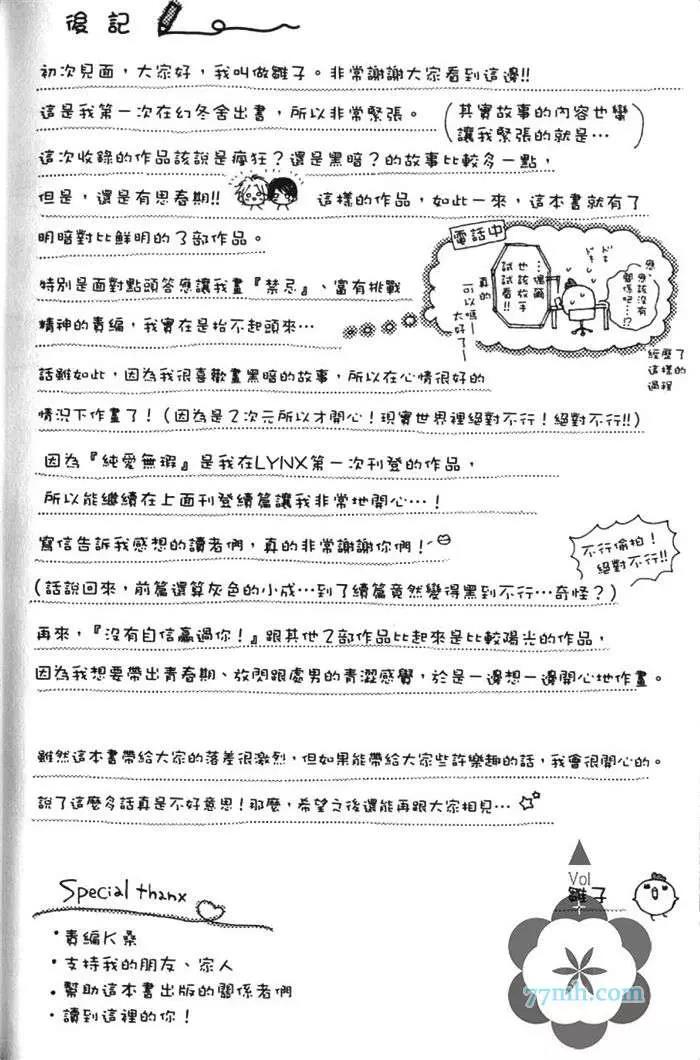 後記
初次見面，大家好，我叫做雛子。非常謝謝大家看到這邊!!
這是我第一次在幻冬舍出書，所以非常緊張。
(其實故事的內容也蠻
讓我緊張的就是…)
這次收錄的作品該說是瘋狂？還是黑暗？的故事比較多一點，
但是，還是有思春期!! 這樣的作品，如此一來，這本書就有了
明暗對比鮮明的了部作品。
電話中
應、
應該沒有
關係吧…!?
ドキ
ドキ
…偶爾
也該放手
試試看!!
真的
可以嗎—
太好了—
經歷了
這樣的
過程
特別是面對點頭答應讓我畫『禁忌』、富有挑戰
精神的責編，我實在是抬不起頭來…
話雖如此，因為我很喜歡畫黑暗的故事，所以在心情很好的
情況下作畫了！(因為是2次元所以才開心！現實世界裡絕對不行！絕對不行!!)
因為『純愛無瑕』是我在LYNX第一次刊登的作品，
所以能繼續在上面刊登續篇讓我非常地開心…！
寫信告訴我感想的讀者們，真的非常謝謝你們！
不行偷拍！
絕對不行!!
(話說回來，前篇還算灰色的小成…到了續篇竟然變得黑到不行…奇怪？)
再來，『沒有自信贏過你！』跟其他2部作品比起來是比較陽光的作品，
因為我想要帶出青春期、放閃跟處男的青澀感覺，於是一邊想一邊開心地作畫。
雖然這本書帶給大家的落差很激烈，但如果能帶給大家些許樂趣的話，我會很開心的。
說了這麼多話真是不好意思！那麼，希望之後還能再跟大家相見…
Vol
雛子
Special thanx
・責編K桑
・支持我的朋友、家人
・幫助這本書出版的關係者們
・讀到這裡的你！
77mh.com